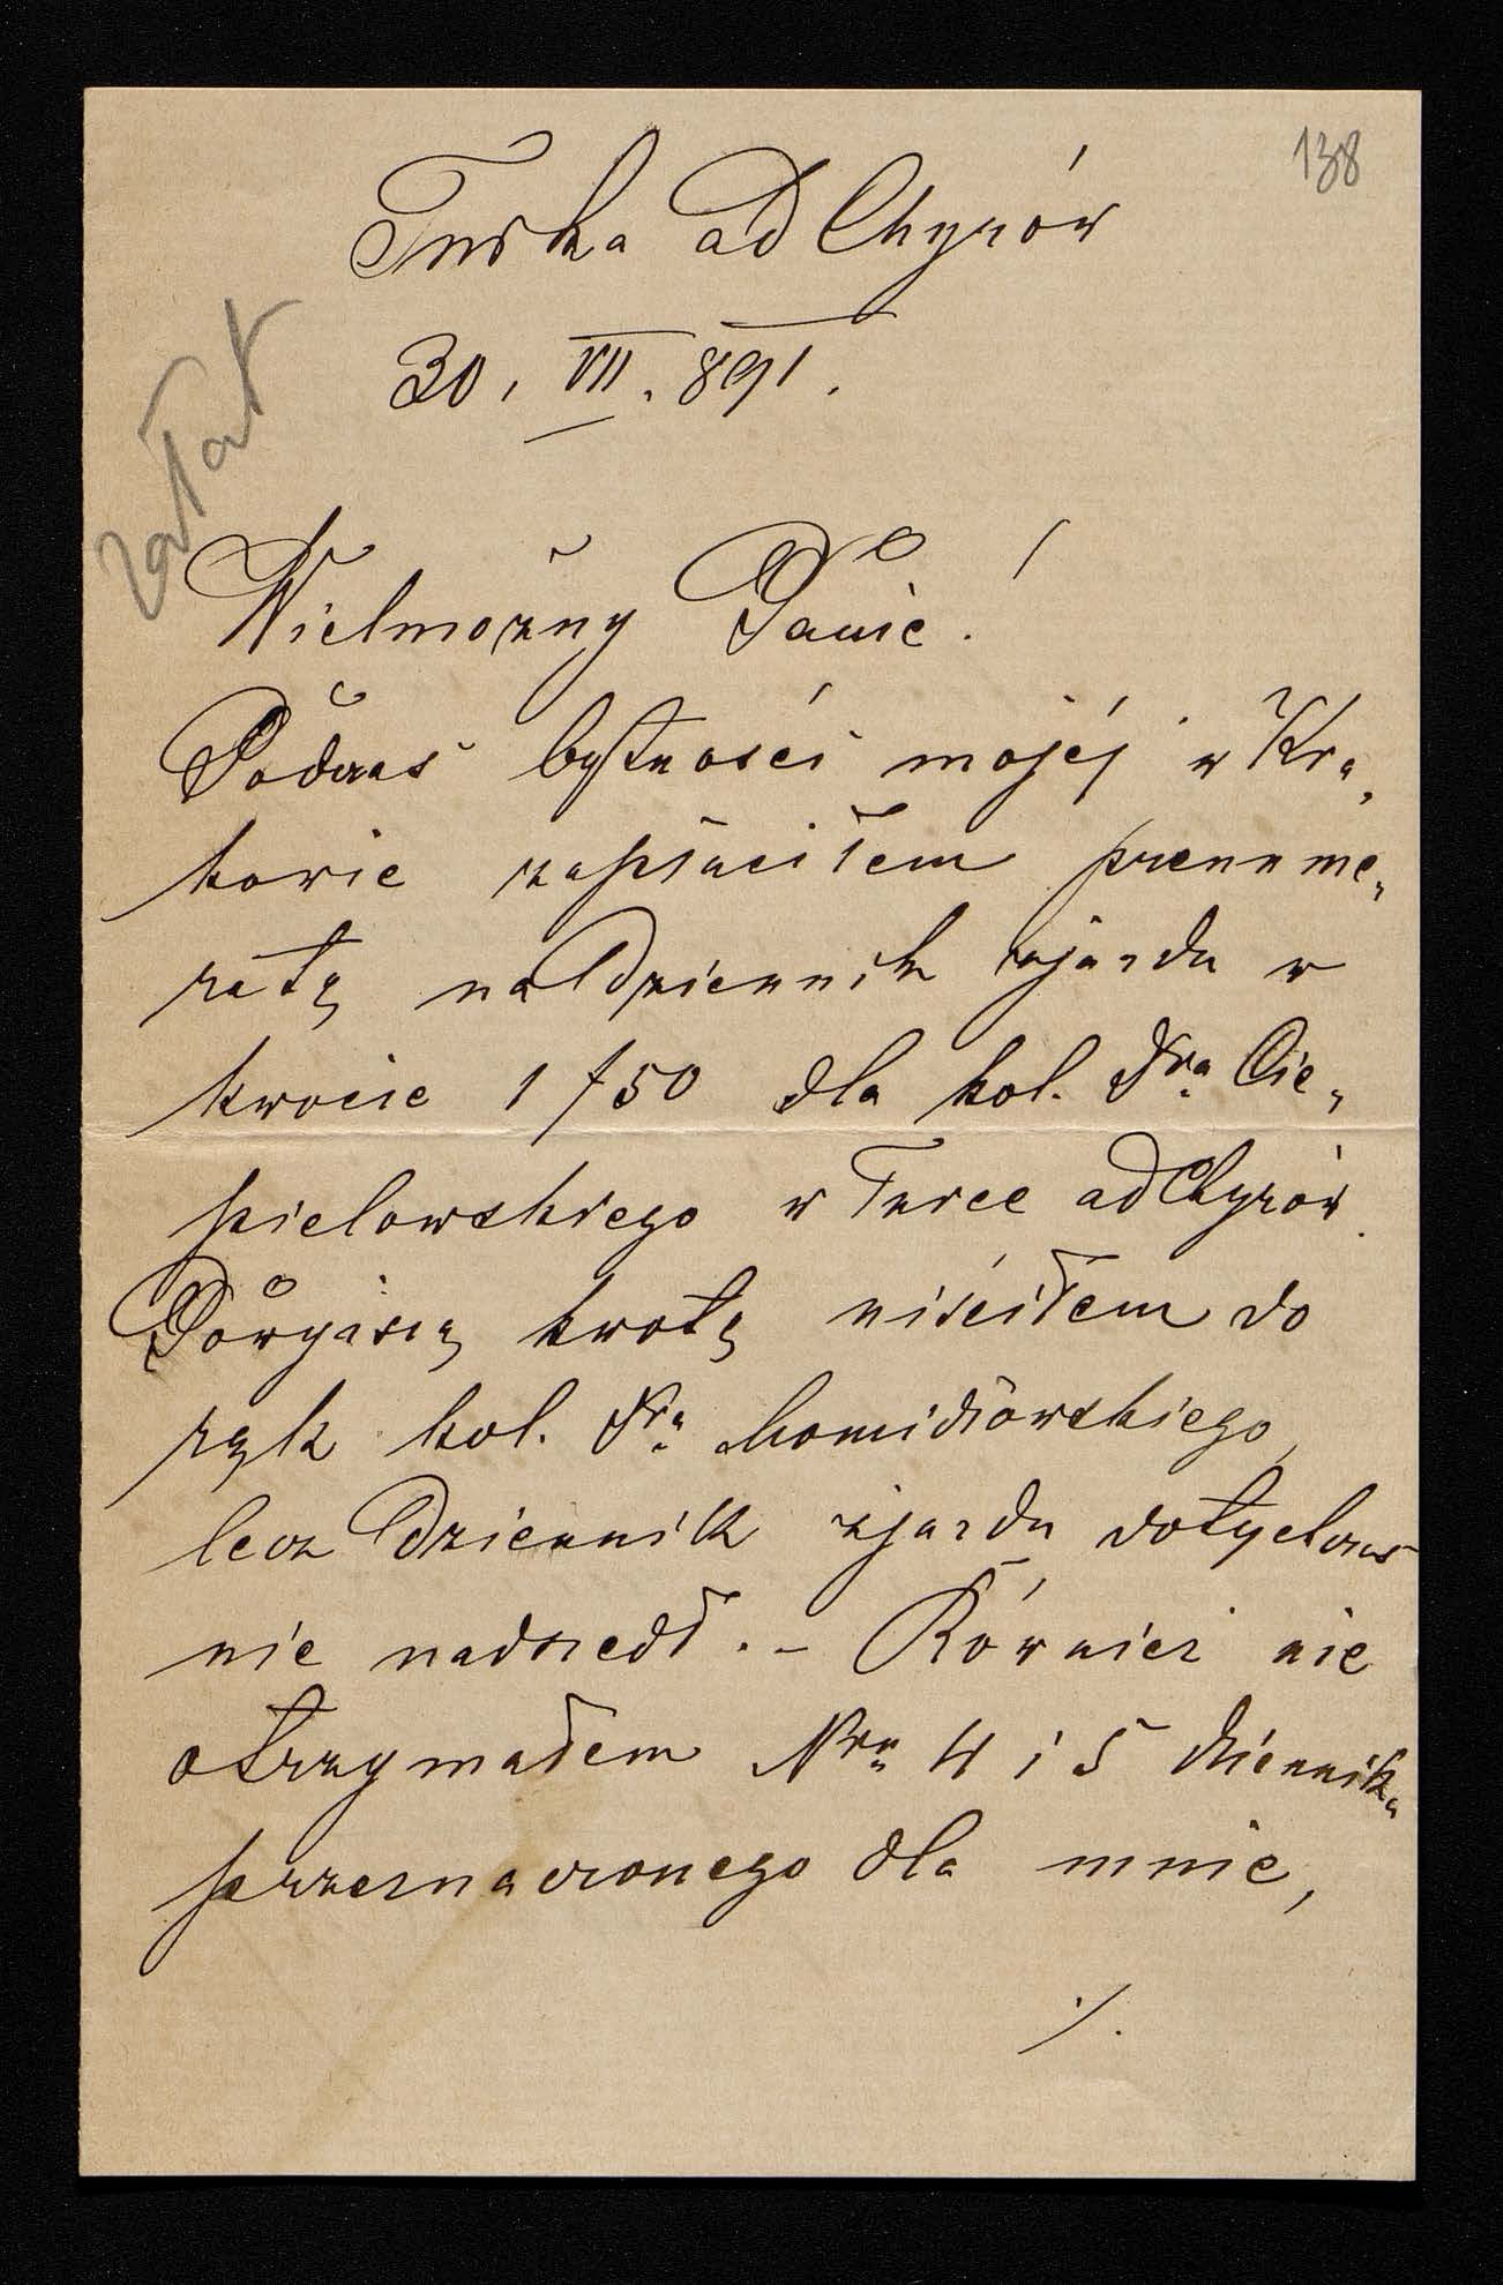 138
Turka ad Chyrów
30. VII. 891.
załat
Wielmożny Panie!
Podczas bytności mojéj w Kra„
kowie zapłaciłem prenume„
ratę na Dziennik zjazdu w
kwocie 1 f 50 dla kol. Dra Cie„
pielowskiego w Turce ad Chyrów.
Powyższą kwotę uiściłem do
rąk kol. Dra
lecz Dziennik zjazdu dotychczas
nie nadszedł. – Również nie
otrzymałem Nru 4 i 5 dziennika
przeznaczonego dla mnie,
./.